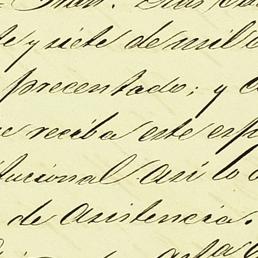 te y siete de mil o
precentado; y c
reciba este esp
tucional asi lo
de asistencia.